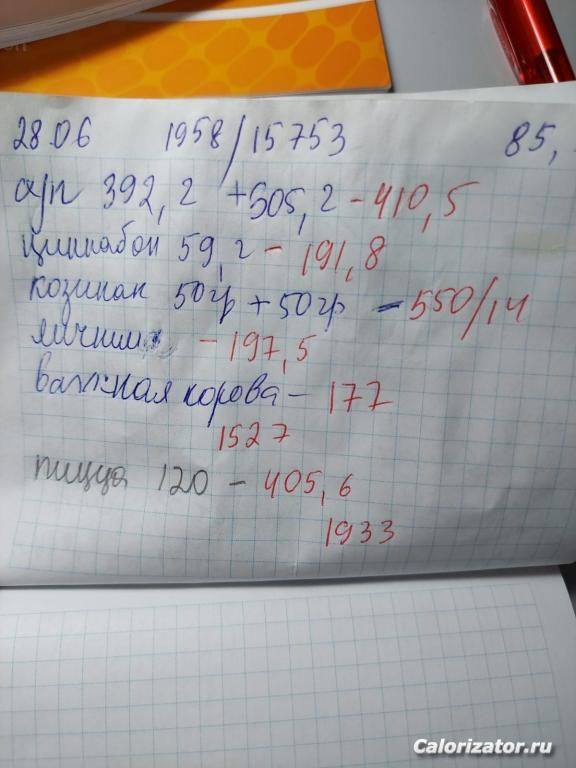 28.06 1958/15753 85,
а/п 392, г +505, г - 410,5
циннабон 59, г - 191,8
козинак 50гр + 50гр - 550/14
яичниц - 197,5
важная корова - 177
1527
пицца 120 - 405,6
1933
Calorizator.ru